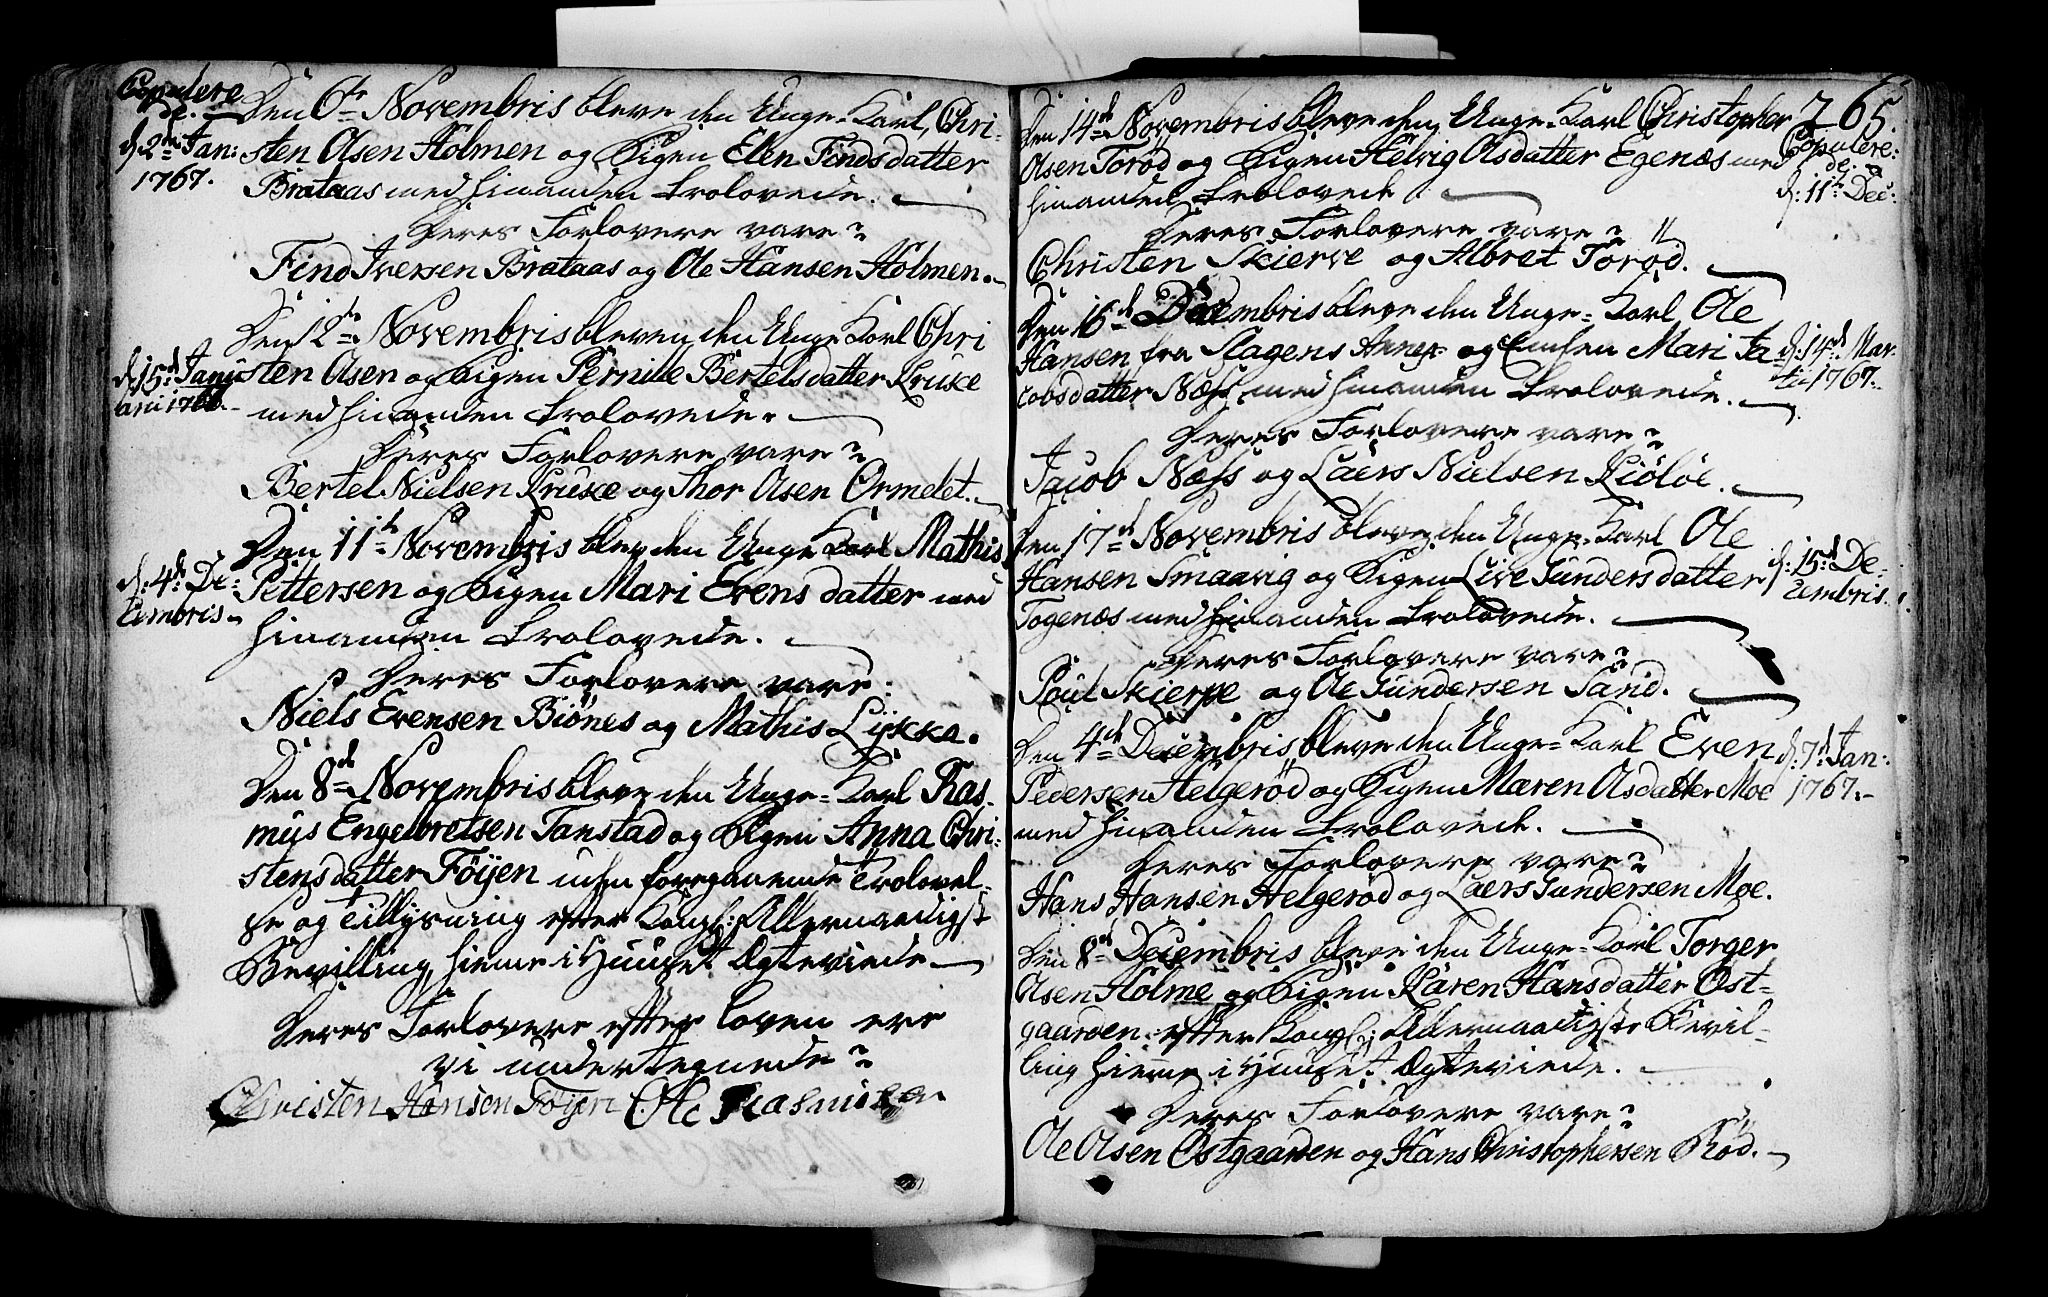 Copulere
de.
d. 2den Jan:
1767.
Den 6te Novembris bleve den Unge Karl, Chri-
sten Olsen Holmen og Pigen Elen Findsdatter
Brataas med hinanden trolovede.
Deres Forlovere vare?
Find Iversen Brataas og Ole Hansen Holmen.
d. 15de Janu
arii 1766.
Den 12te Novembris bleven den Unge Karl Chri
sten Olsen og Pigen Pernille Bertelsdatter Kruke
med hinanden trolovede.
Deres Forlovere vare?
Bertel Nielsen Kruke og Thor Olsen Ormelet.
d. 4de De-
cembris
Den 11te Novembris blev den Unge Karl Mathis
Pettersen og Pigen Mari Evensdatter med
hinanden trolovede.
Deres Forlovere vare:
Niels Evensen Biönes og Mathis Lykke.
Den 8de Novembris bleve den Unge-Karl Ras-
mus Engelbretsen Tanstad og Pigen Anna Chri-
stensdatter Föyen uden foregaaende Trolovel-
se og Tillysning efter Kongl: Allernaadigst
Bevilling hieme i Huuset Ægteviede
Deres Forlovere efter loven ere
vi undertegnede?
Christen Hansen Föyen Ole Rasmusen
265.
Copulere:
de.
d. 11te Dec:
Den 14de Novembris bleve den Unge-Karl Christopher
Olsen Torød og Pigen Helvig Olsdatter Egenæs med
hinanden trolovede
Deres Forlovere vare?
Christen Skierve og Albret Toröd.
d. 14de Mar-
tii 1767.
Den 16de Decembris bleve den Unge-Karl Ole
Hansen fra Slagens Annex og Enken Mari Ja-
cobsdatter Næss med hinanden trolovede.
Deres Forlovere vare?
Jacob Næss og Laers Nielsen Kiölöe.
d. 15de De-
cembris.
Den 17de Novembris bleve den Unge-Karl Ole
Hansen Smaavig og Pigen Live Gundersdatter
Togenæs med hinanden trolovede.
Deres Forlovere vare?
Poul Skierpe og Ole Gundersen Sand.
d. 7de Jan:
1767.
Den 4de Decembris bleve den Unge-Karl Even
Pedersen Helgeröd og Pigen Maren Olsdatter Moe
med hinanden trolovede.
Deres Forlovere vare?
Hans Hansen Helgeröd og Laers Gundersen Moe.
Den 8de Decembris bleve den Unge-Karl Torger
Olsen Holme og Pigen Karen Hansdatter Ost-
gaarden efter Kongl: Allernaadigste Bevil-
ling hieme i Huuset Ægteviede.
Deres Forlovere vare?
Ole Olsen Ostgaarden og Hans Christophersen Röd.